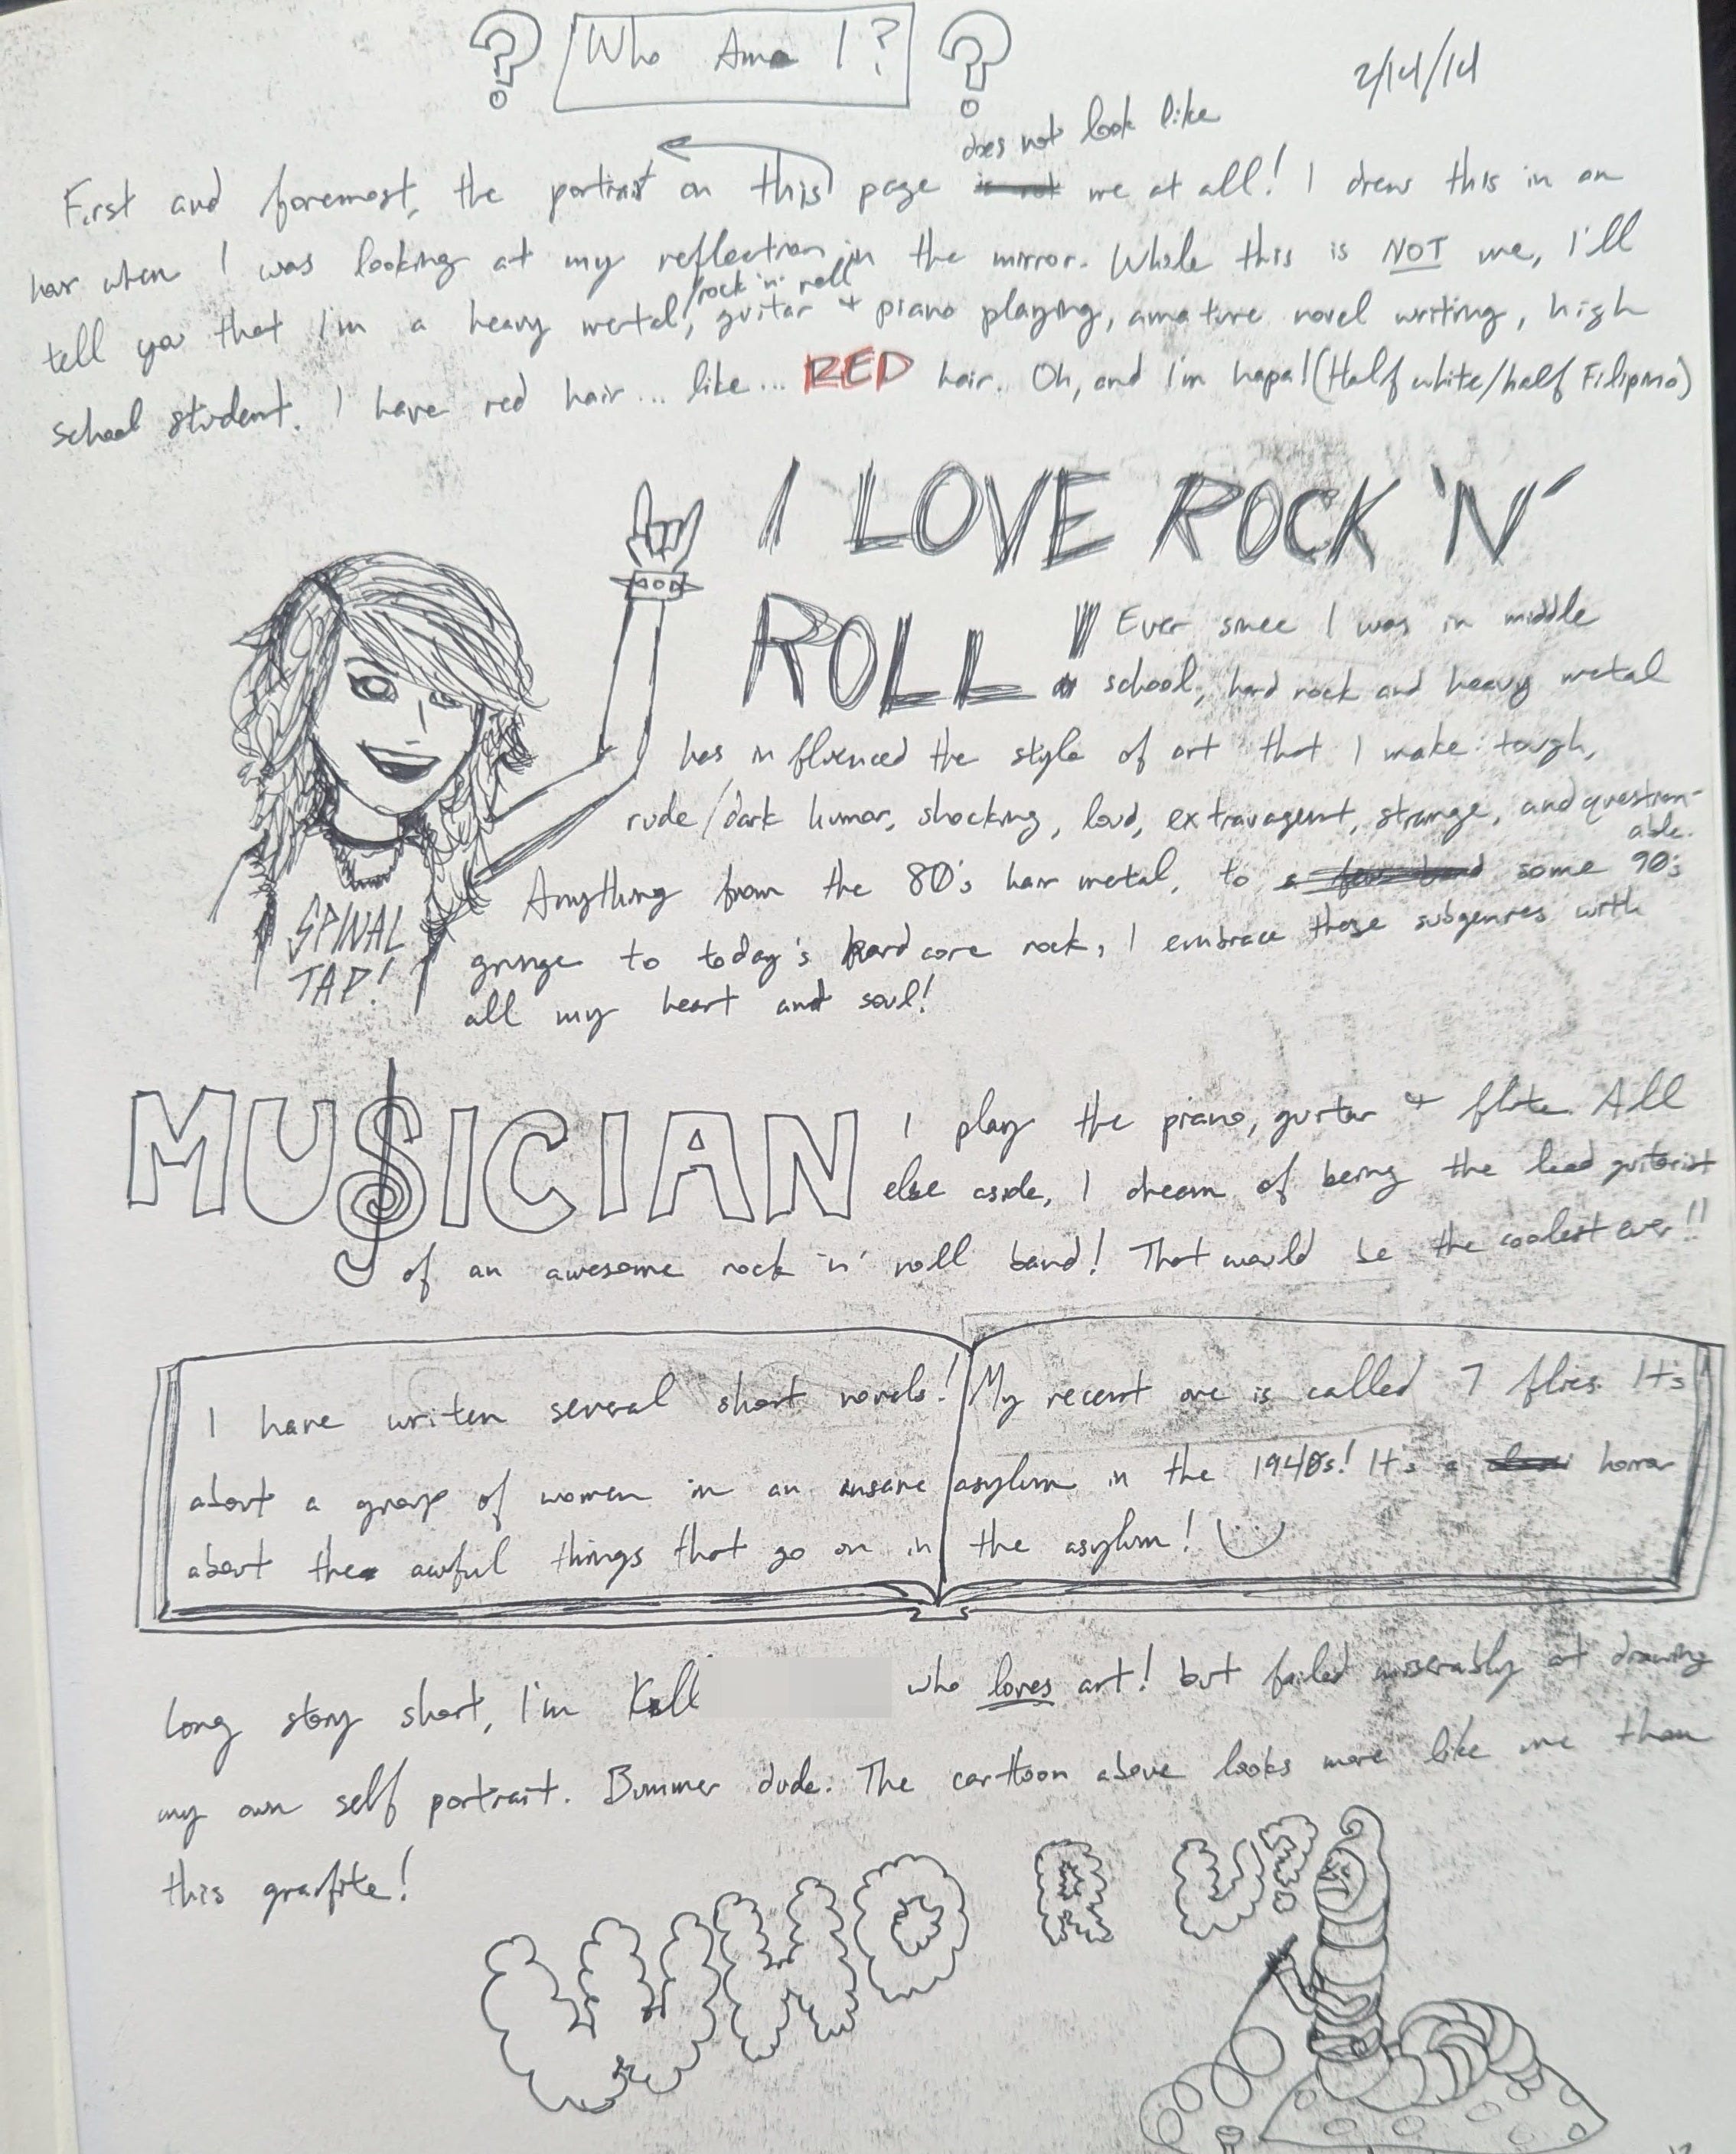 ? Who Am I? ?
2/14/14
does not look like
First and foremost, the portriat on this page is not me at all! I drew this in an
hour when I was looking at my reflection in the mirror. While this is NOT me, I'll
rock 'n' roll
tell you that I'm a heavy metal/, guitar + piano playing, amature novel writing, high
school student. I have red hair... like... RED hair. Oh, and I'm hapa! (Half white/half Filipino)
I LOVE ROCK 'N'
ROLL! Ever since I was in middle
school, hard rock and heavy metal
has influenced the style of art that I make: tough,
rude/dark humor, shocking, loud, extravagent, strange, and question-
able.
Anything from the 80's hair metal, to some 90's
grunge to today's hardcore rock, I embrace those subgenres with
all my heart and soul!
SPINAL
TAP!
MUSICIAN I play the piano, guitar + flute. All
else aside, I dream of being the lead guitarist
of an awesome rock 'n' roll band! That would be the coolest ever!!
I have writen several short novels! My recent one is called 7 flies. It's
about a group of women in an insane asylum in the 1940s! It's a horror
about the awful things that go on in the asylum!
Long story short, I'm Kell who loves art! but failed miserably at drawing
my own self portrait. Bummer dude. The carttoon above looks more like me than
this grafite!
WHO R U?